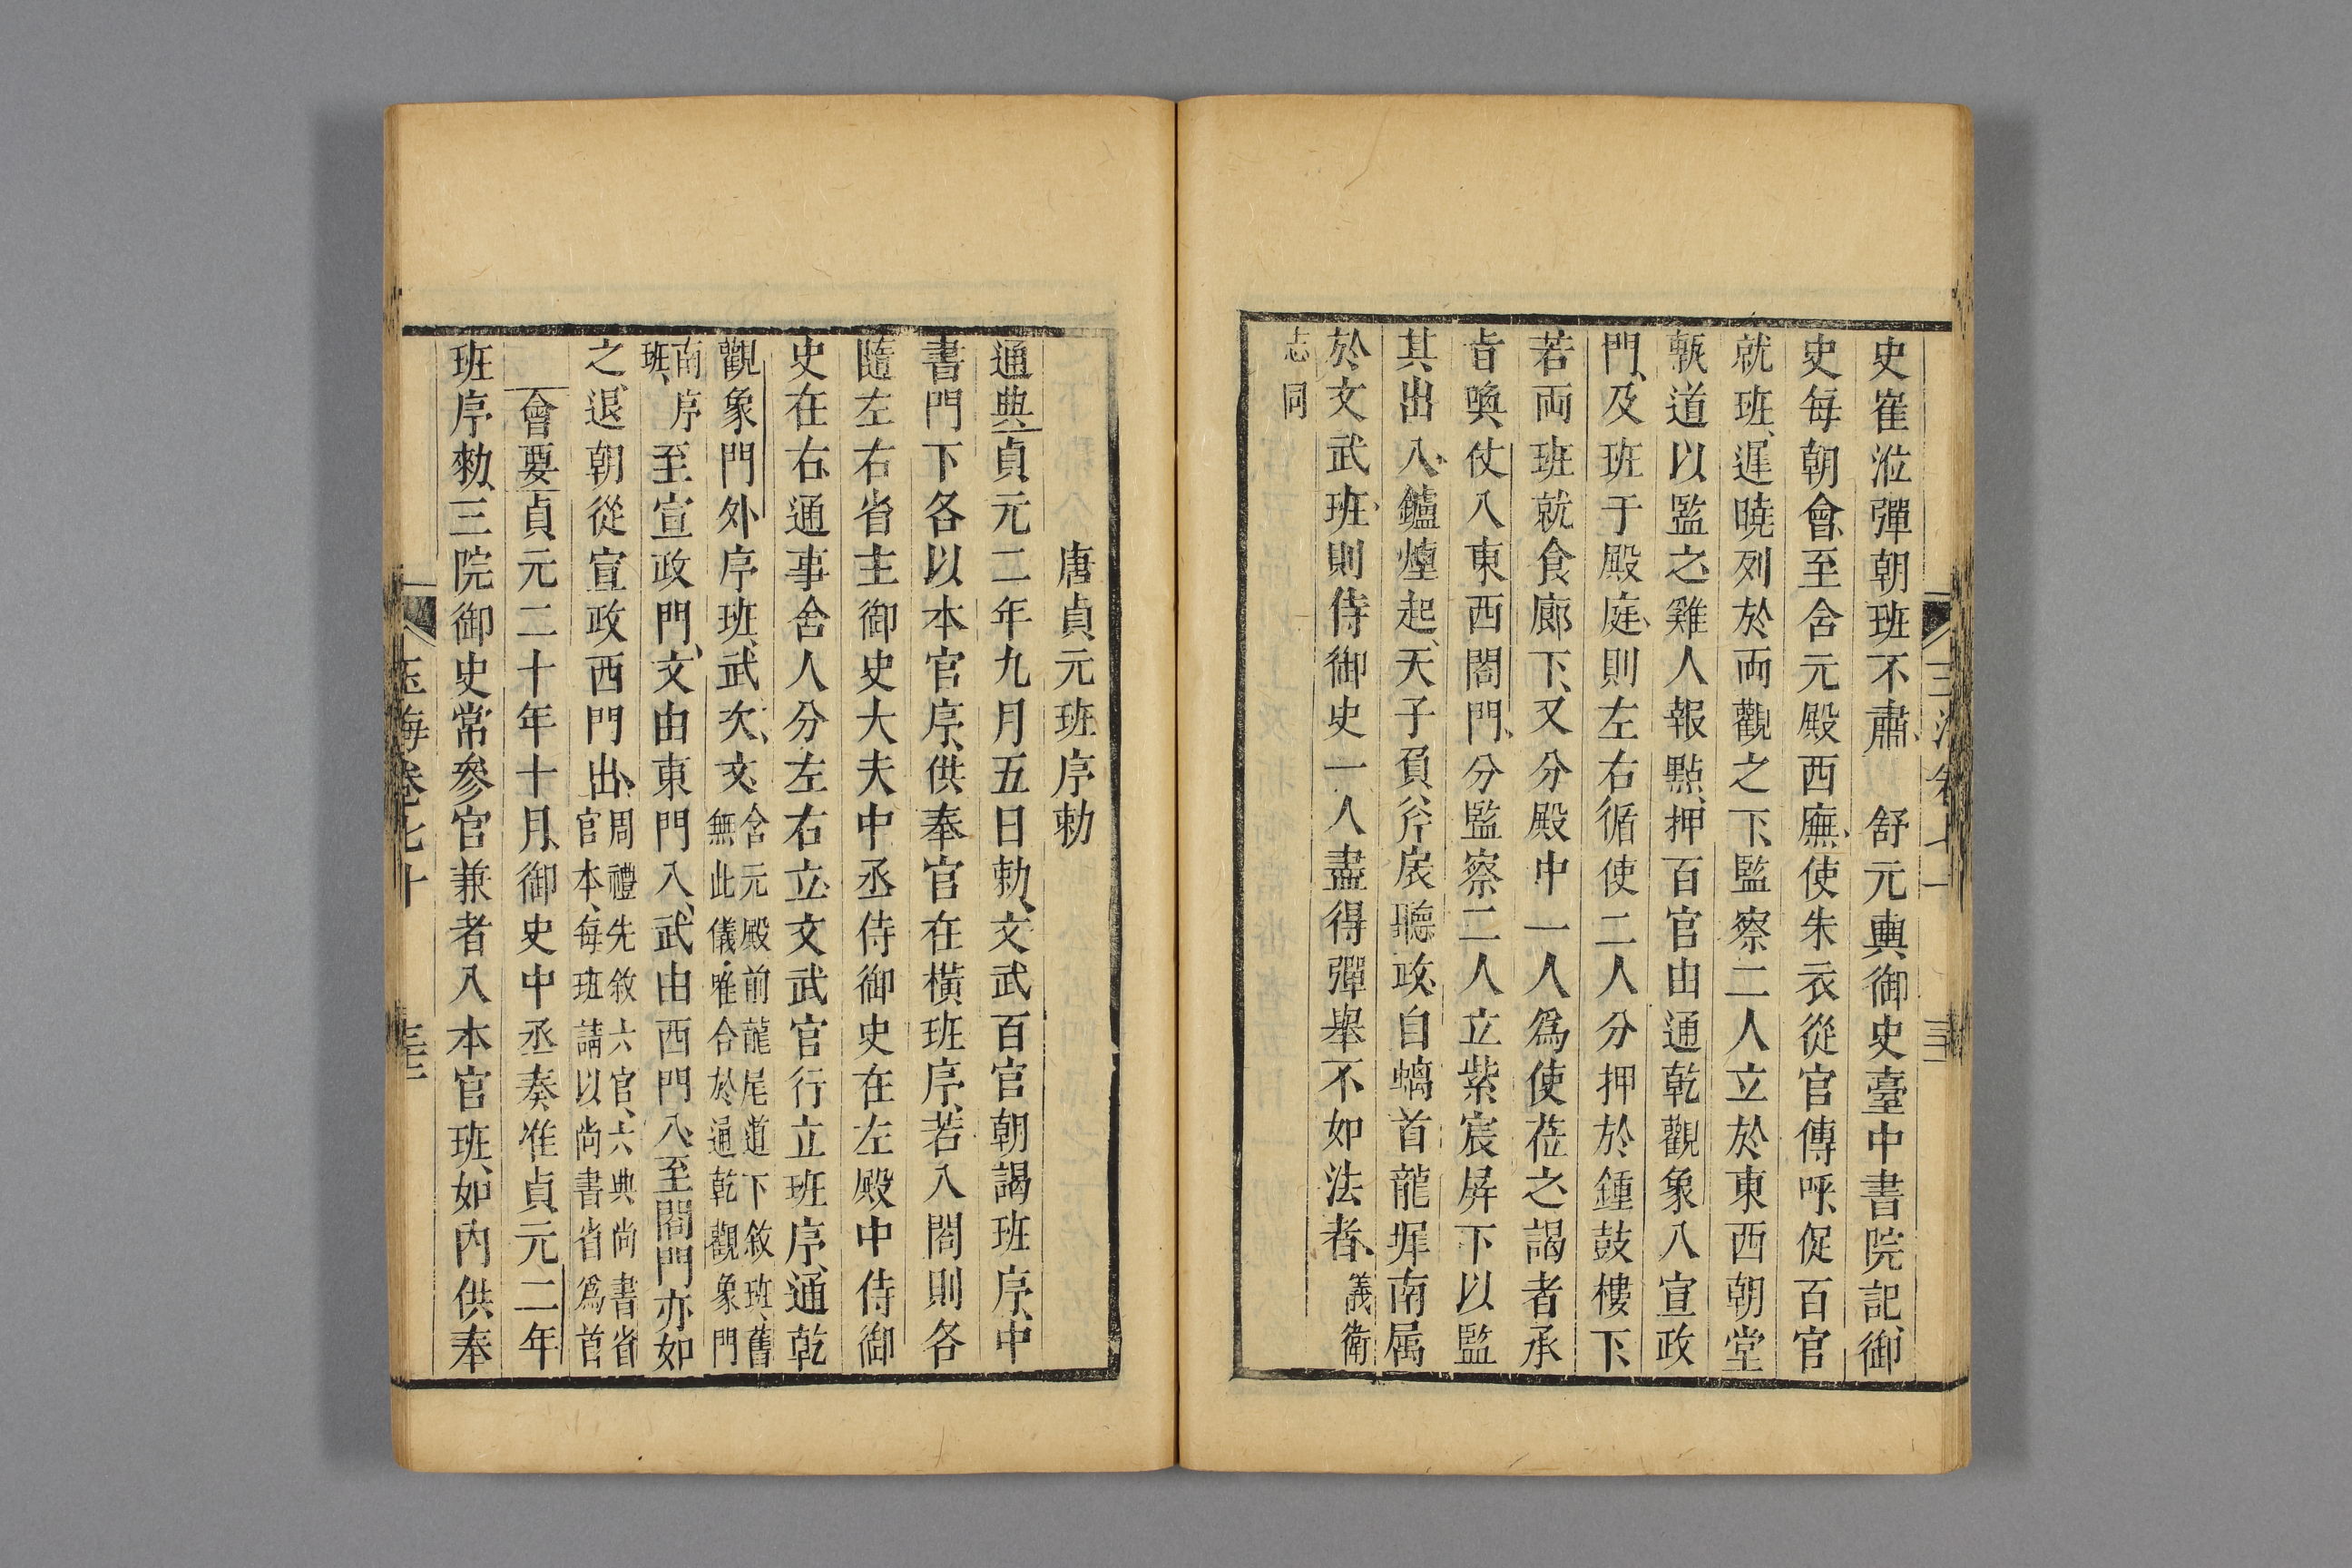 史崔涖彈朝班不肅　舒元輿御史臺中書院記御
史每朝會至含元殿西廡使朱衣從官傳呼促百官
就班遲曉列於兩觀之下監察二人立於東西朝堂
甎道以監之雞人報點押百官由通乾觀象入宣政
門及班于殿庭則左右循使二人分押於鍾鼓樓下
若兩班就食廊下又分殿中一人爲使莅之謁者承
旨喚仗入東西閤門分監察二人立紫宸屏下以監
其出入鑪煙起天子負斧扆聽政自螭首龍墀南属
於文武班則侍御史一人盡得彈舉不如法者義衛
志同
唐貞元班序勅
通典貞元二年九月五日勅文武百官朝謁班序中
書門下各以本官序供奉官在橫班序若入閤則各
隨左右省主御史大夫中丞侍御史在左殿中侍御
史在右通事舍人分左右立文武官行立班序通乾
觀象門外序班武次文含元殿前龍尾道下敘班舊無此儀唯合於通乾觀象門
南序班至宣政門文由東門入武由西門入至閤門亦如
之退朝從宣政西門出周禮先敘六官六典尚書省官本每班請以尚書省爲首
會要貞元二十年十月御史中丞奏准貞元二年
班序勅三院御史常參官兼者入本官班如內供奉
玉海卷七十